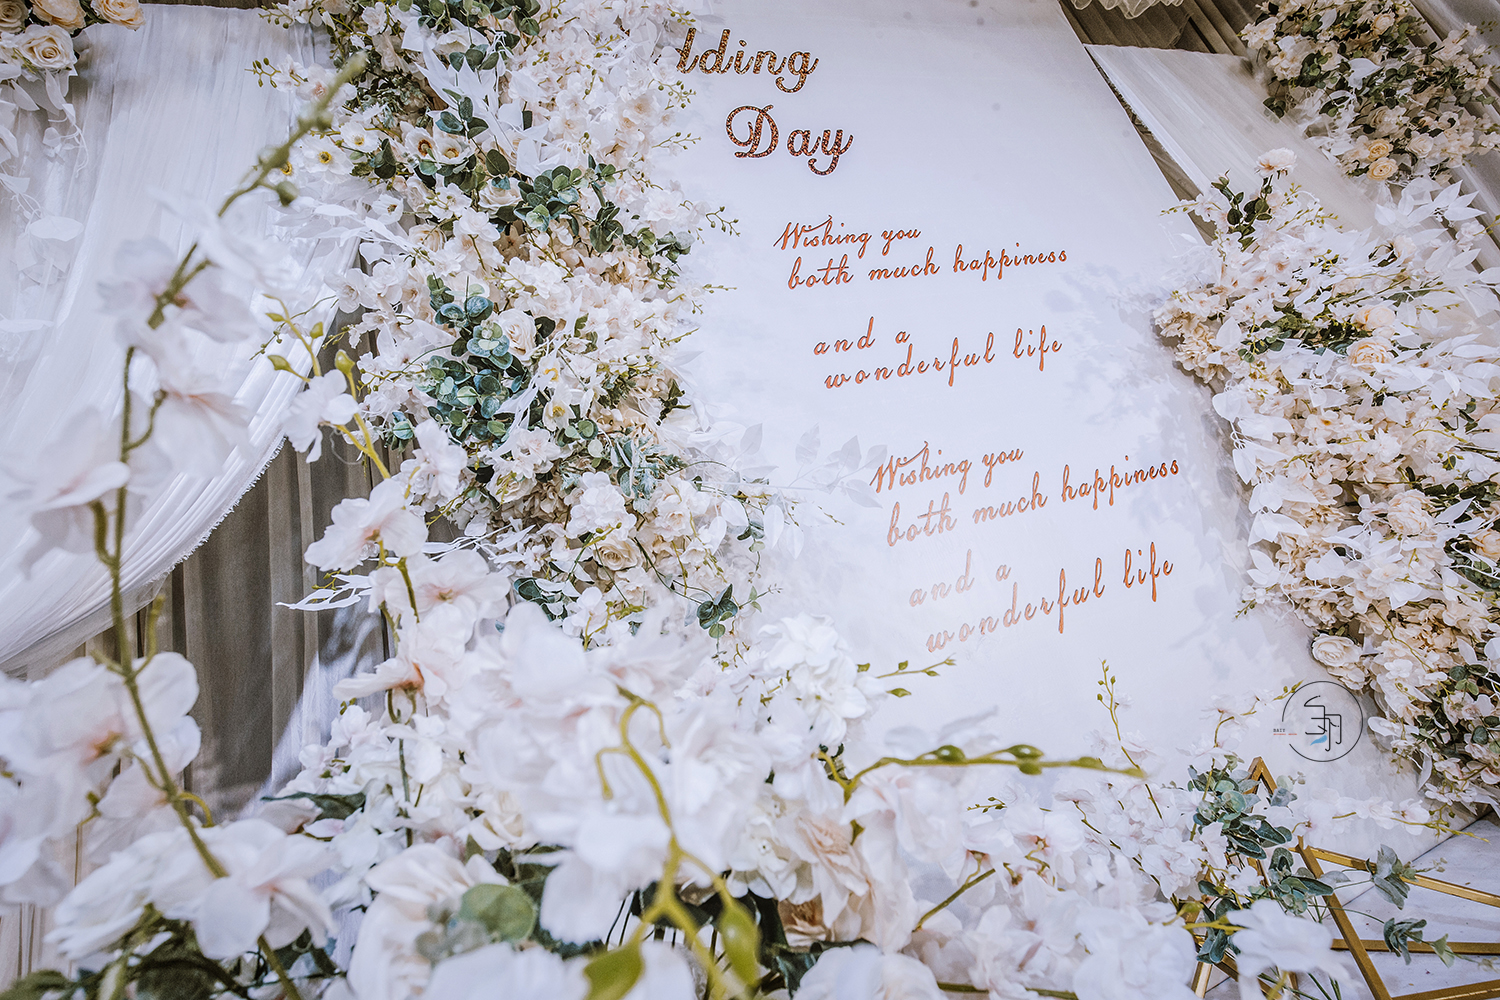 dding
Day
Wishing you
both much happiness
and a
wonderful life
Wishing you
both much happiness
and a
wonderful life